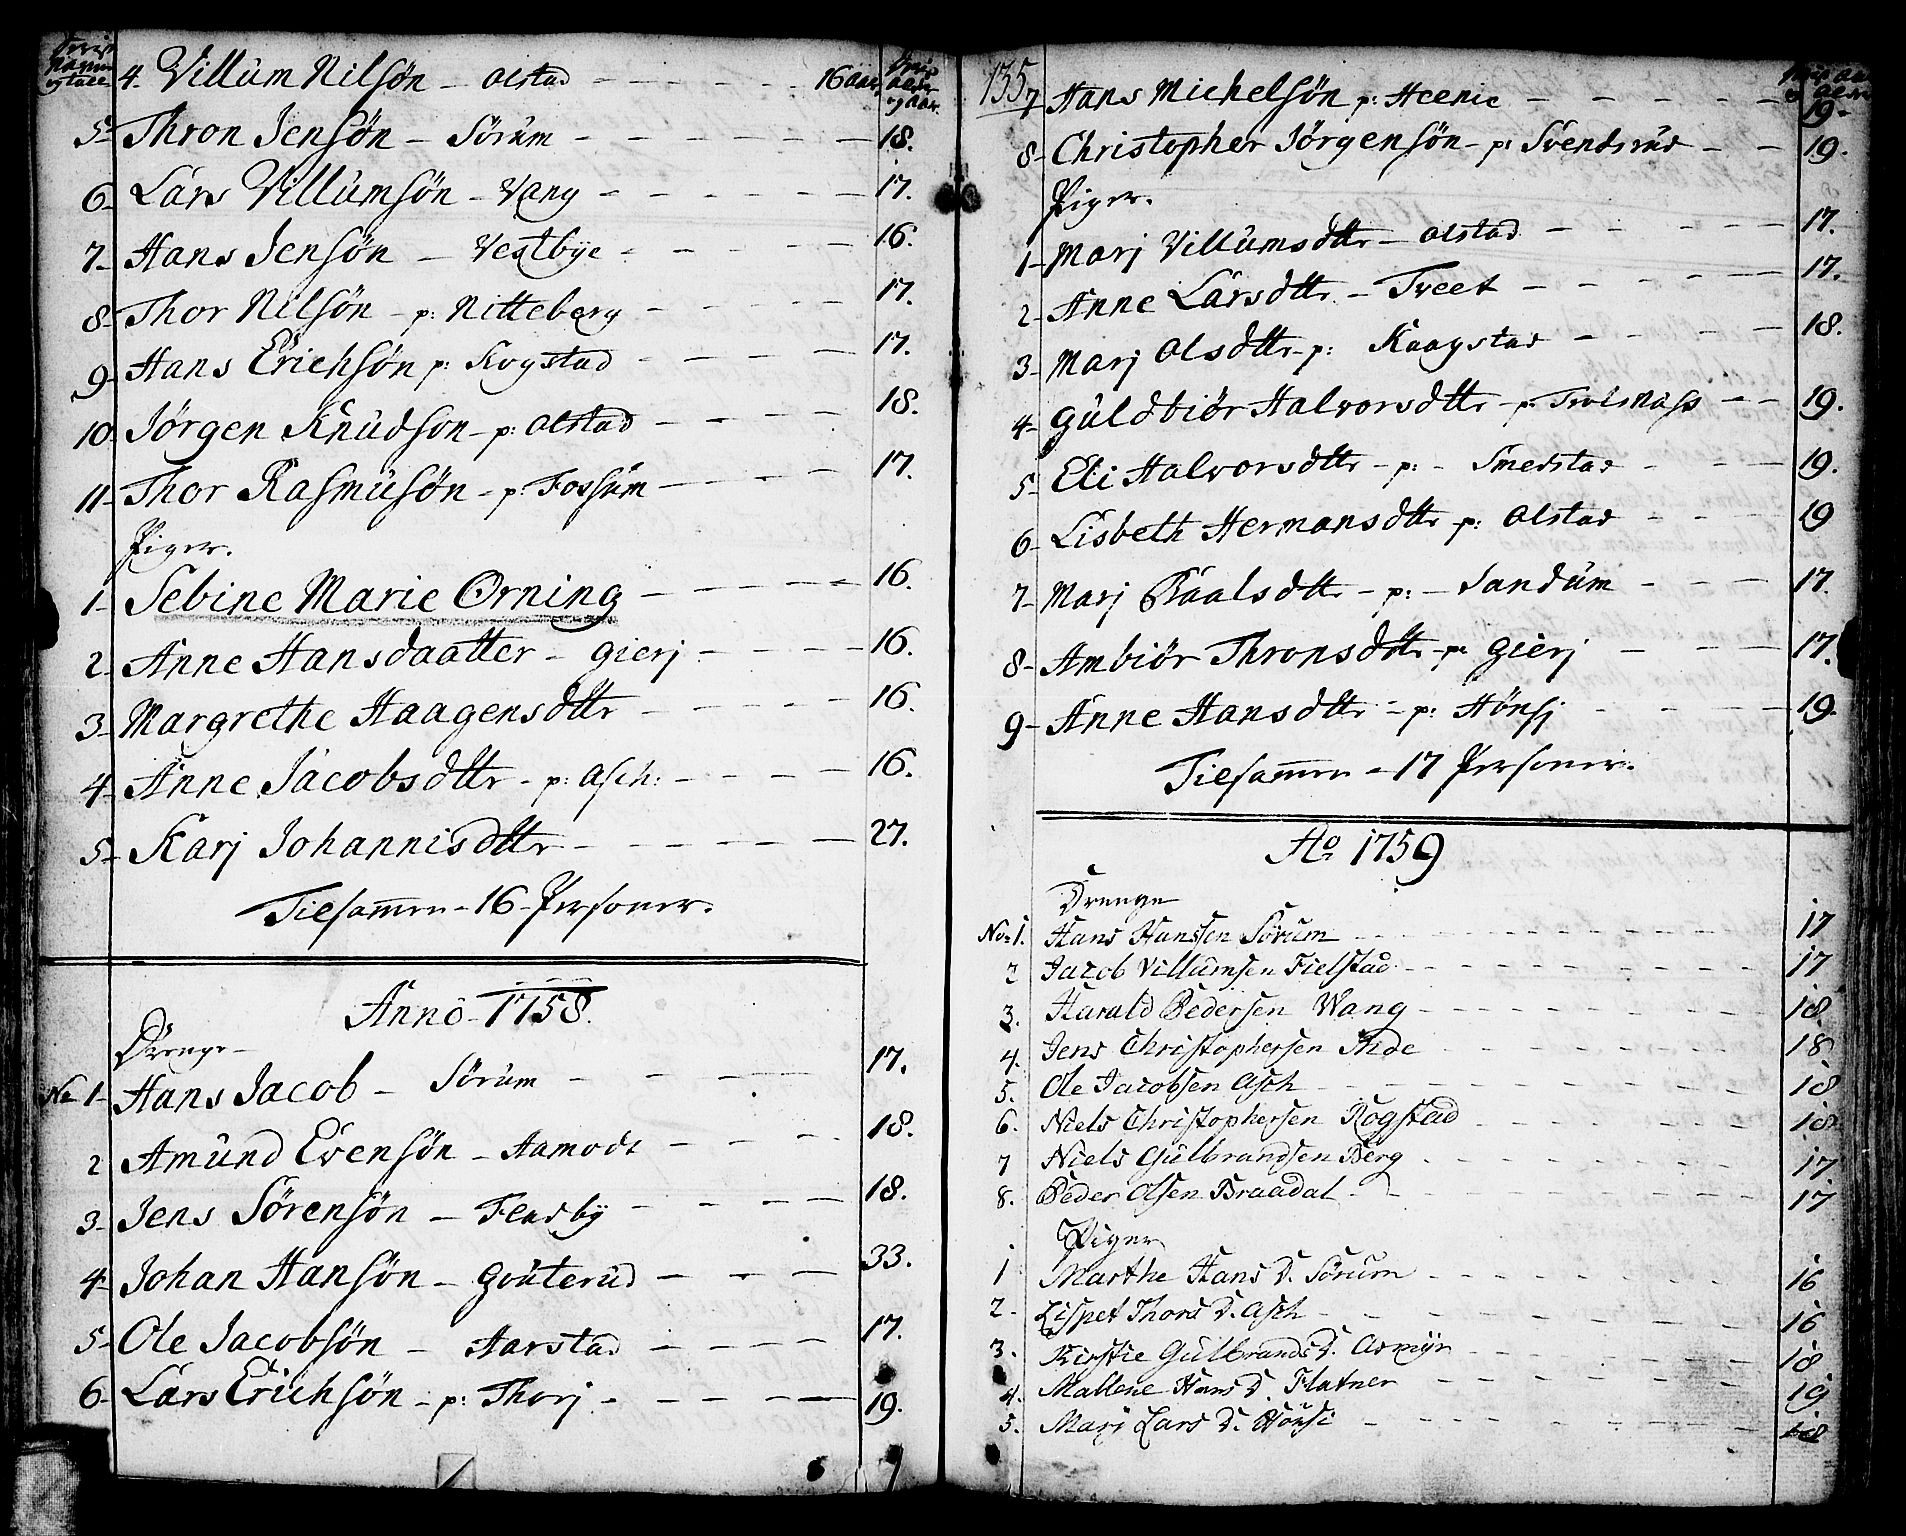 4. Villum Nilsøn - Olstad - - - - 16 aar
5- Thron Jensøn - Sørum - - - - 18.
6- Lars Villumsøn - Vang - - - - 17.
7- Hans Jensøn - Vestbye - - - - 16.
8- Thor Nilsøn - p: Nitteberg - - - - 17.
9- Hans Erichsøn p: Kogstad - - - - 17.
10- Jørgen Knudsøn - p: Olstad - - - 18.
11- Thor Rasmusøn - p: Fossum - - - - 17.
Piger.
1- Sebine Marie Orning - - - - 16.
2- Anne Hansdaatter - gierj - - - - 16.
3- Margrethe Haagensdttr - - - - 16.
4- Anne Jacobsdttr - p: Asch: - - - - 16.
5- Karj Johannisdttr - - - - 27.
Tilsammen - 16 - Personer.
Anno - 1758.
Drenge -
No 1- Hans Jacob - Sørum - - - - 17.
2 Amund Evensøn - Aamodt - - - - 18.
3- Jens Sørensøn - Fladby - - - - 18.
4- Johan Hansøn - Gouterud - - - 33.
5- Ole Jacobsøn - Aarstad - - - - 17.
6- Lars Erichsøn - p: Thorj - - - - 19.
135
7 Hans Michelsøn p: Heenie - - - - 19-
8- Christopher Jørgensøn - p: Svendsrud - - 19.
Piger.
1- Marj Villumsdttr - Olstad - - - - 17.
2- Anne Larsdttr. - Tveet - - - - 17.
3- Marj Olsdttr - p: Kaagstad - - - - 18.
4- Guldbiør Halvorsdttr - p: - - 19.
5- Eli Halvorsdttr - p: - Smedstad - - - 19.
6- Lisbeth Hermansdttr p: Olstad - - - 19
7- Marj Paalsdttr - p: - Sandum - - - 17.
8- Ambiør Thronsdttr - p: gierj - - - 17.
9- Anne Hansdttr - p: Hønsj - - - - 19-
Tilsammen - 17 Personer.
Ao 1759
Drenge
No 1. Hans Hanssen Sørum - - - - 17
2 Jacob Villumsen Fielstad - - - - 17
3. Harald Pedersen Wang - - - - 18
4. Jens Christophersen Ihde - - - - 18
5. Ole Jacobsen Asch - - - - 18
6. Niels Christophersen Rogstad - - - - 18
7 Niels Gulbrandsen Berg - - - - 17
8. Peder Olsen Braadal - - - - 17
Piger
1 Marthe Hans D. Sørum - - - - 16
2- Lispet Thors D. Asch - - - - 16
3. Kirstie Gulbrands D. - - - - 18
4. Mallene Hans D. Flatner - - - - 19
5. Mari Lars D. Hønsi - - - - 18